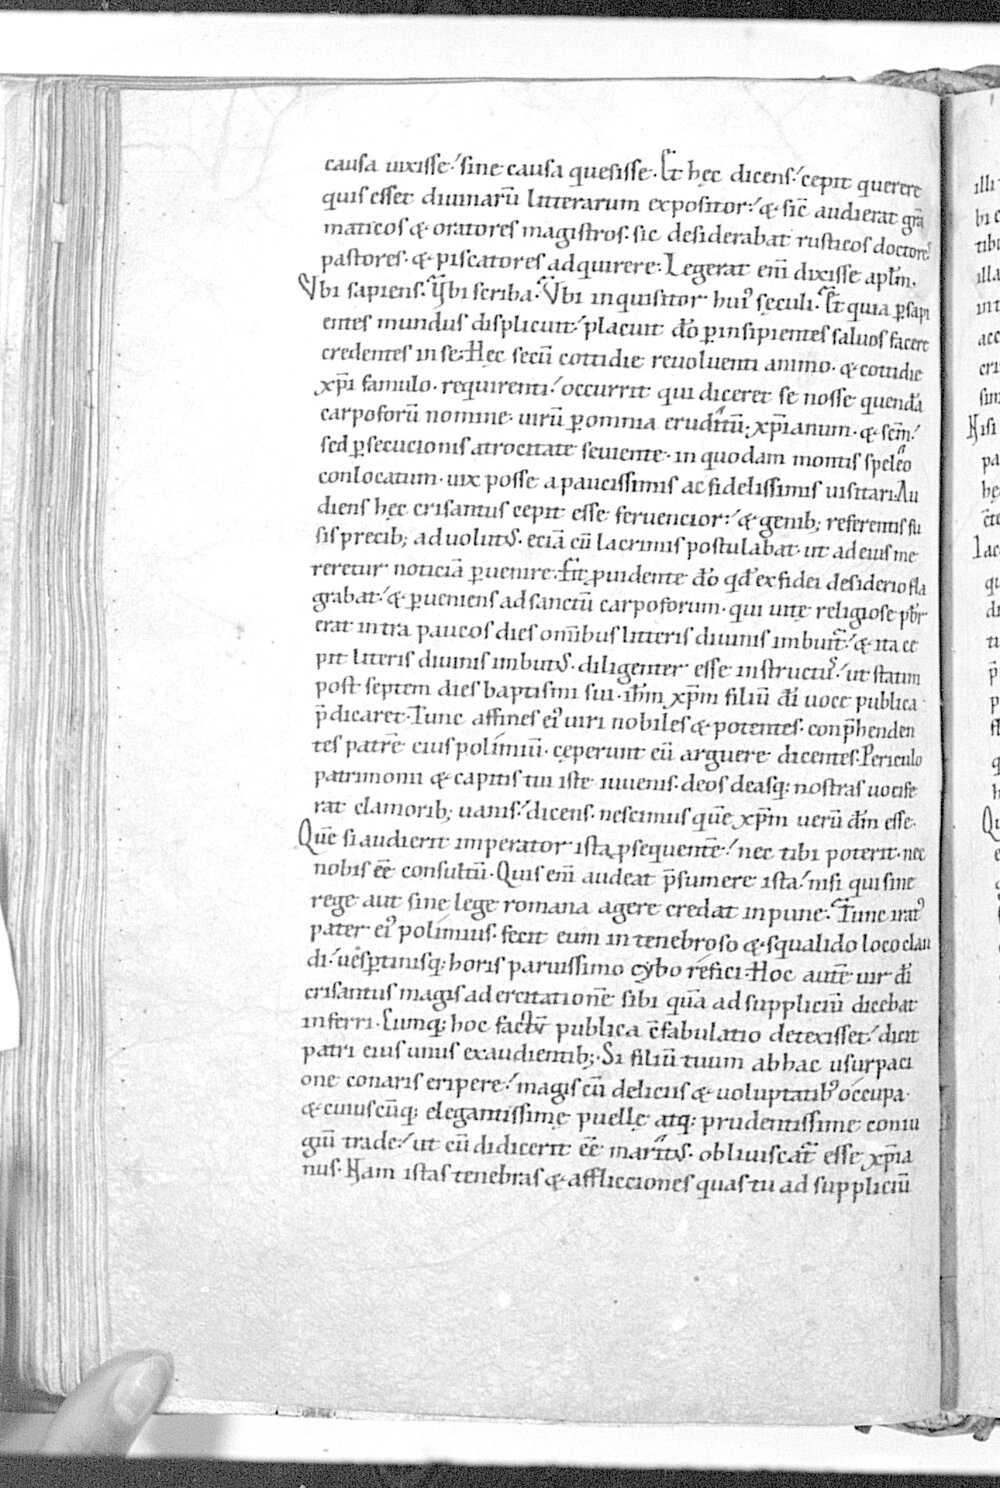 causa uixisse. sine causa quesisse. Et hęc dicens. cepit querere
quis esset diuinarū litterarum expositor. & sic̄ audierat grā
maticos & oratores magistros. sic desiderabat rusticos doctores
pastores. & piscatores adquirere. Legerat eni̅ dixisse apl̅m.
Vbi sapiens. Vbi scriba. Vbi inquisitor huiꝰ sęculi. Et quia ꝑ sapi
entes mundus displicuit. placuit do̅ ꝑ insipientes saluos facere
credentes in se. Hęc secū cottidie reuoluenti animo. & cottidie
xp̅i famulo. requirenti. occurrit qui diceret se nosse quendā
carpoforū nomine. uirū ꝑ omnia eruditū. xp̅ianum. & sc̅m.
sed ꝑsecucionis atrocitate seuiente. in quodam montis speleo
conlocatum. uix posse a paucissimis ac fidelissimis uisitari. Au
diens hęc crisantus cepit esse feruencior. & genib; referentis su
sis precib; aduolutus. eciā cū lacrimis postulabat. ut ad eius me
reretur noticiā ꝑuenire. Fit ꝓuidente do̅ qd̅ ex fidei desiderio fla
grabat. & ꝑueniens ad sanctū carpoforum. qui uitę religiose pb̅r
erat intra paucos dies omi̅bus litteris diuinis imbuit. & ita ce
pit literis diuinis imbutus. diligenter esse instructus. ut statim
post septem dies baptismi sui. ih̅m xp̅m filiū di̅ uoce publica
p̅dicaret. Tunc affines eiꝰ uiri nobiles & potentes. conp̅henden
tes patrē eius polimiū. cęperunt eū arguere dicentes. Periculo
patrimonii & capitis tui iste iuuenis. deos deasq; nostras uocife
rat clamorib; uanis. dicens. nescimus quē xp̅m uerū dm̅ esse.
Quē si audierit imperator ista ꝑsequentē. nec tibi poterit. nec
nobis ee̅ consultū. Quis eni̅ audeat p̅sumere ista. nisi qui sine
rege aut sine lege romana agere credat inpune. Tunc iratꝰ
pater eiꝰ polimius. fecit eum in tenebroso & squalido loco clau
di. uesꝑtinisq; horis paruissimo cybo refici. Hoc autē uir di̅
crisantus magis ad ercitationē sibi quā ad suppliciū dicebat
inferri. Cumq; hoc factū publica c̅fabulatio detexisset. dicit
patri eius unus ex audientib;. Si filiū tuum ab hac usurpaci
one conaris eripere. magis cū deliciis & uoluptatibꝰ occupa.
& cuiuscūq; elegantissimę puellę atq; prudentissime coniu
giū trade. ut cū didicerit ee̅ maritus. obliuiscat̅ esse xp̅ia
nus. Nam istas tenebras & affliccioneſ quas tu ad suppliciū